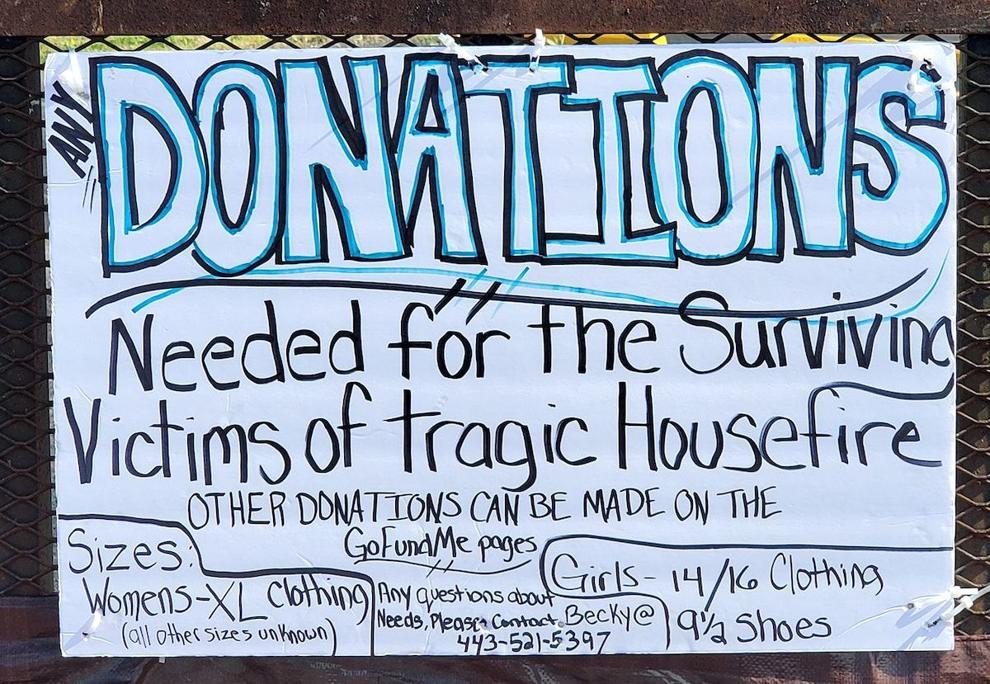 ANY
DONATIONS
Needed for the Surviving
Victims of Tragic Housefire
OTHER DONATIONS CAN BE MADE ON THE
GoFundMe pages
Sizes:
Womens-XL Clothing
(all other sizes unknown)
Any questions about
Needs, Please Contact Becky@
443-521-5397
Girls- 14/16 Clothing
9½ Shoes